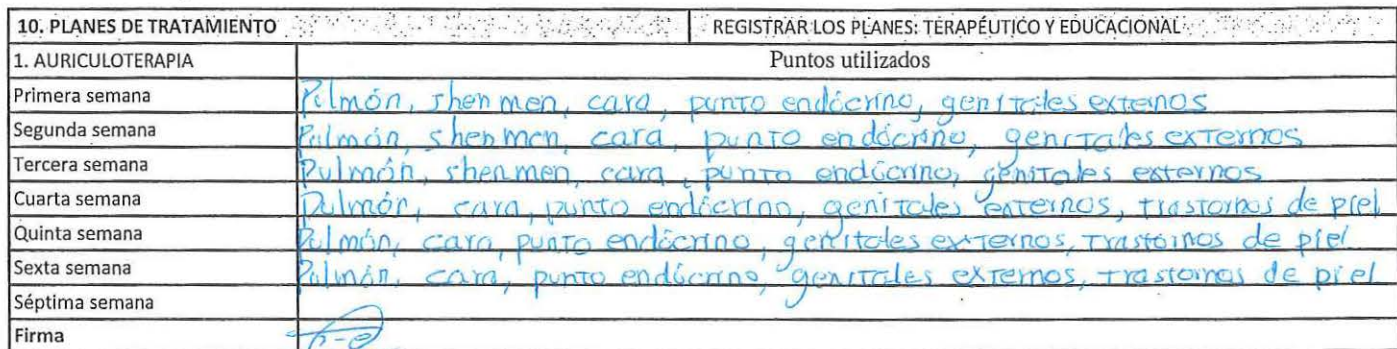 10. PLANES DE TRATAMIENTO REGISTRAR LOS PLANES: TERAPÉUTICO Y EDUCACIONAL
1. AURICULOTERAPIA Puntos utilizados
Primera semana Pulmón, shen men, cara, punto endócrino, genitales externos
Segunda semana Pulmón, shen men, cara, punto endócrino, genitales externos
Tercera semana Pulmón, shenmen, cara, punto endócrino, genitales externos
Cuarta semana Pulmón, cara, punto endócrino, genitales externos, trastornos de piel
Quinta semana Pulmón, cara, punto endócrino, genitales externos, trastornos de piel
Sexta semana Pulmón, cara, punto endócrino, genitales externos, trastornos de piel
Séptima semana
Firma